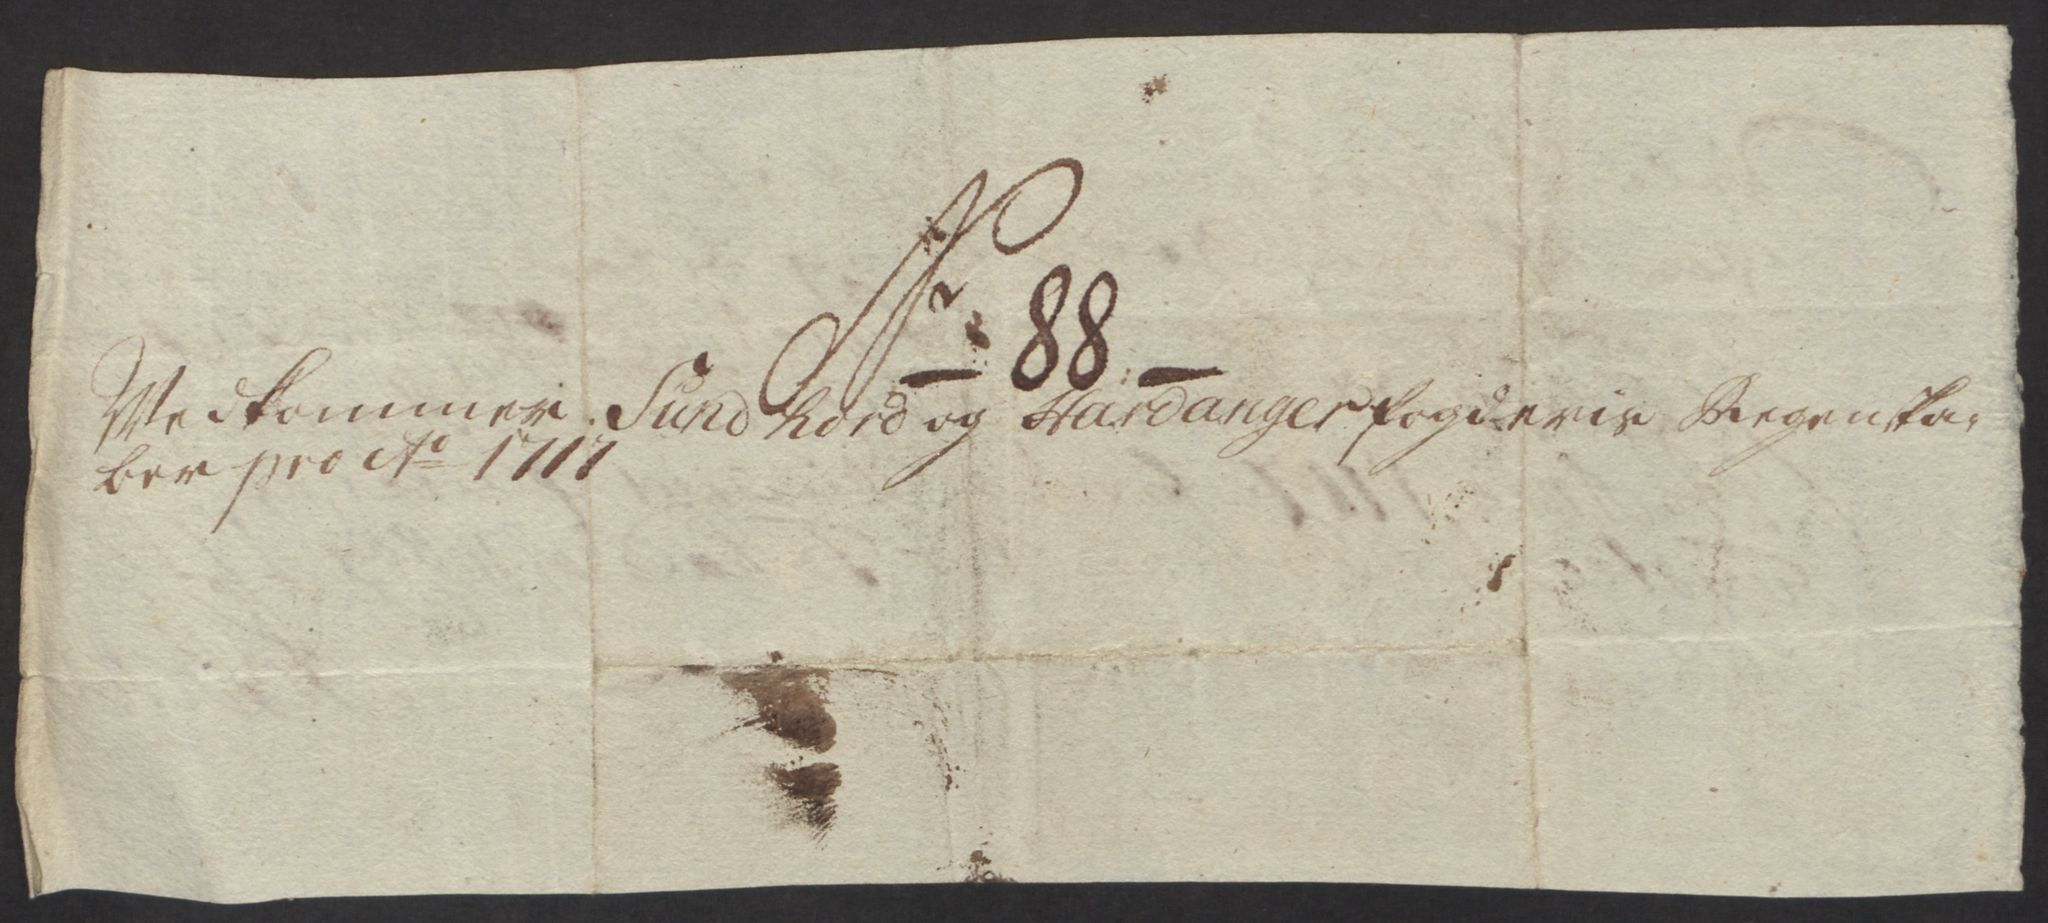 Nr. 88
Vedkommer Sundhord og Hardanger fogderis Regenska-
ber pro Ao 1717